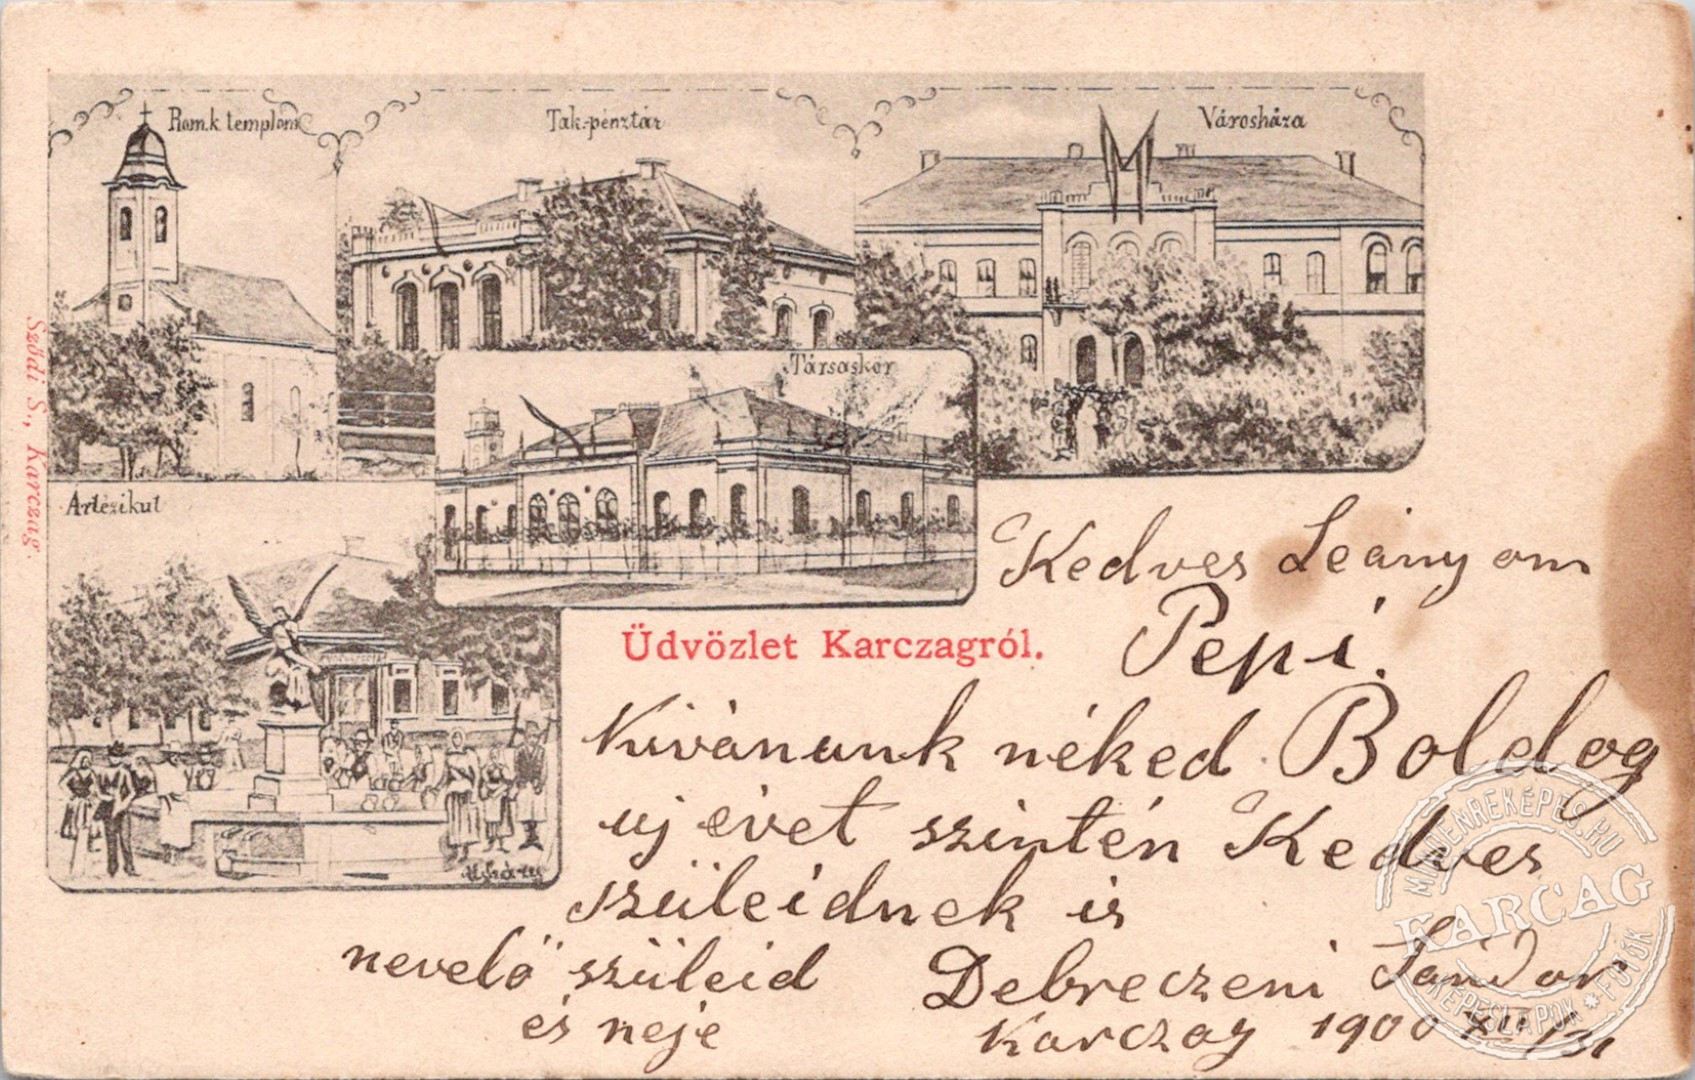 Rom.k. templom
Tak.-pénztár
Városháza
Társaskör
Artézikut
Szódi S., Karczag.
Üdvözlet Karczagról.
Kedves Leányom
Pepi.
Kivánunk néked Boldog
uj évet szintén Kedves
szüleidnek is
nevelő szüleid
és neje
Debreczeni Sándor
Karczag 1900 XII/31
MINDENREKÉPES.HU
KARCAG
KÉPESLAPOK * FOTÓK